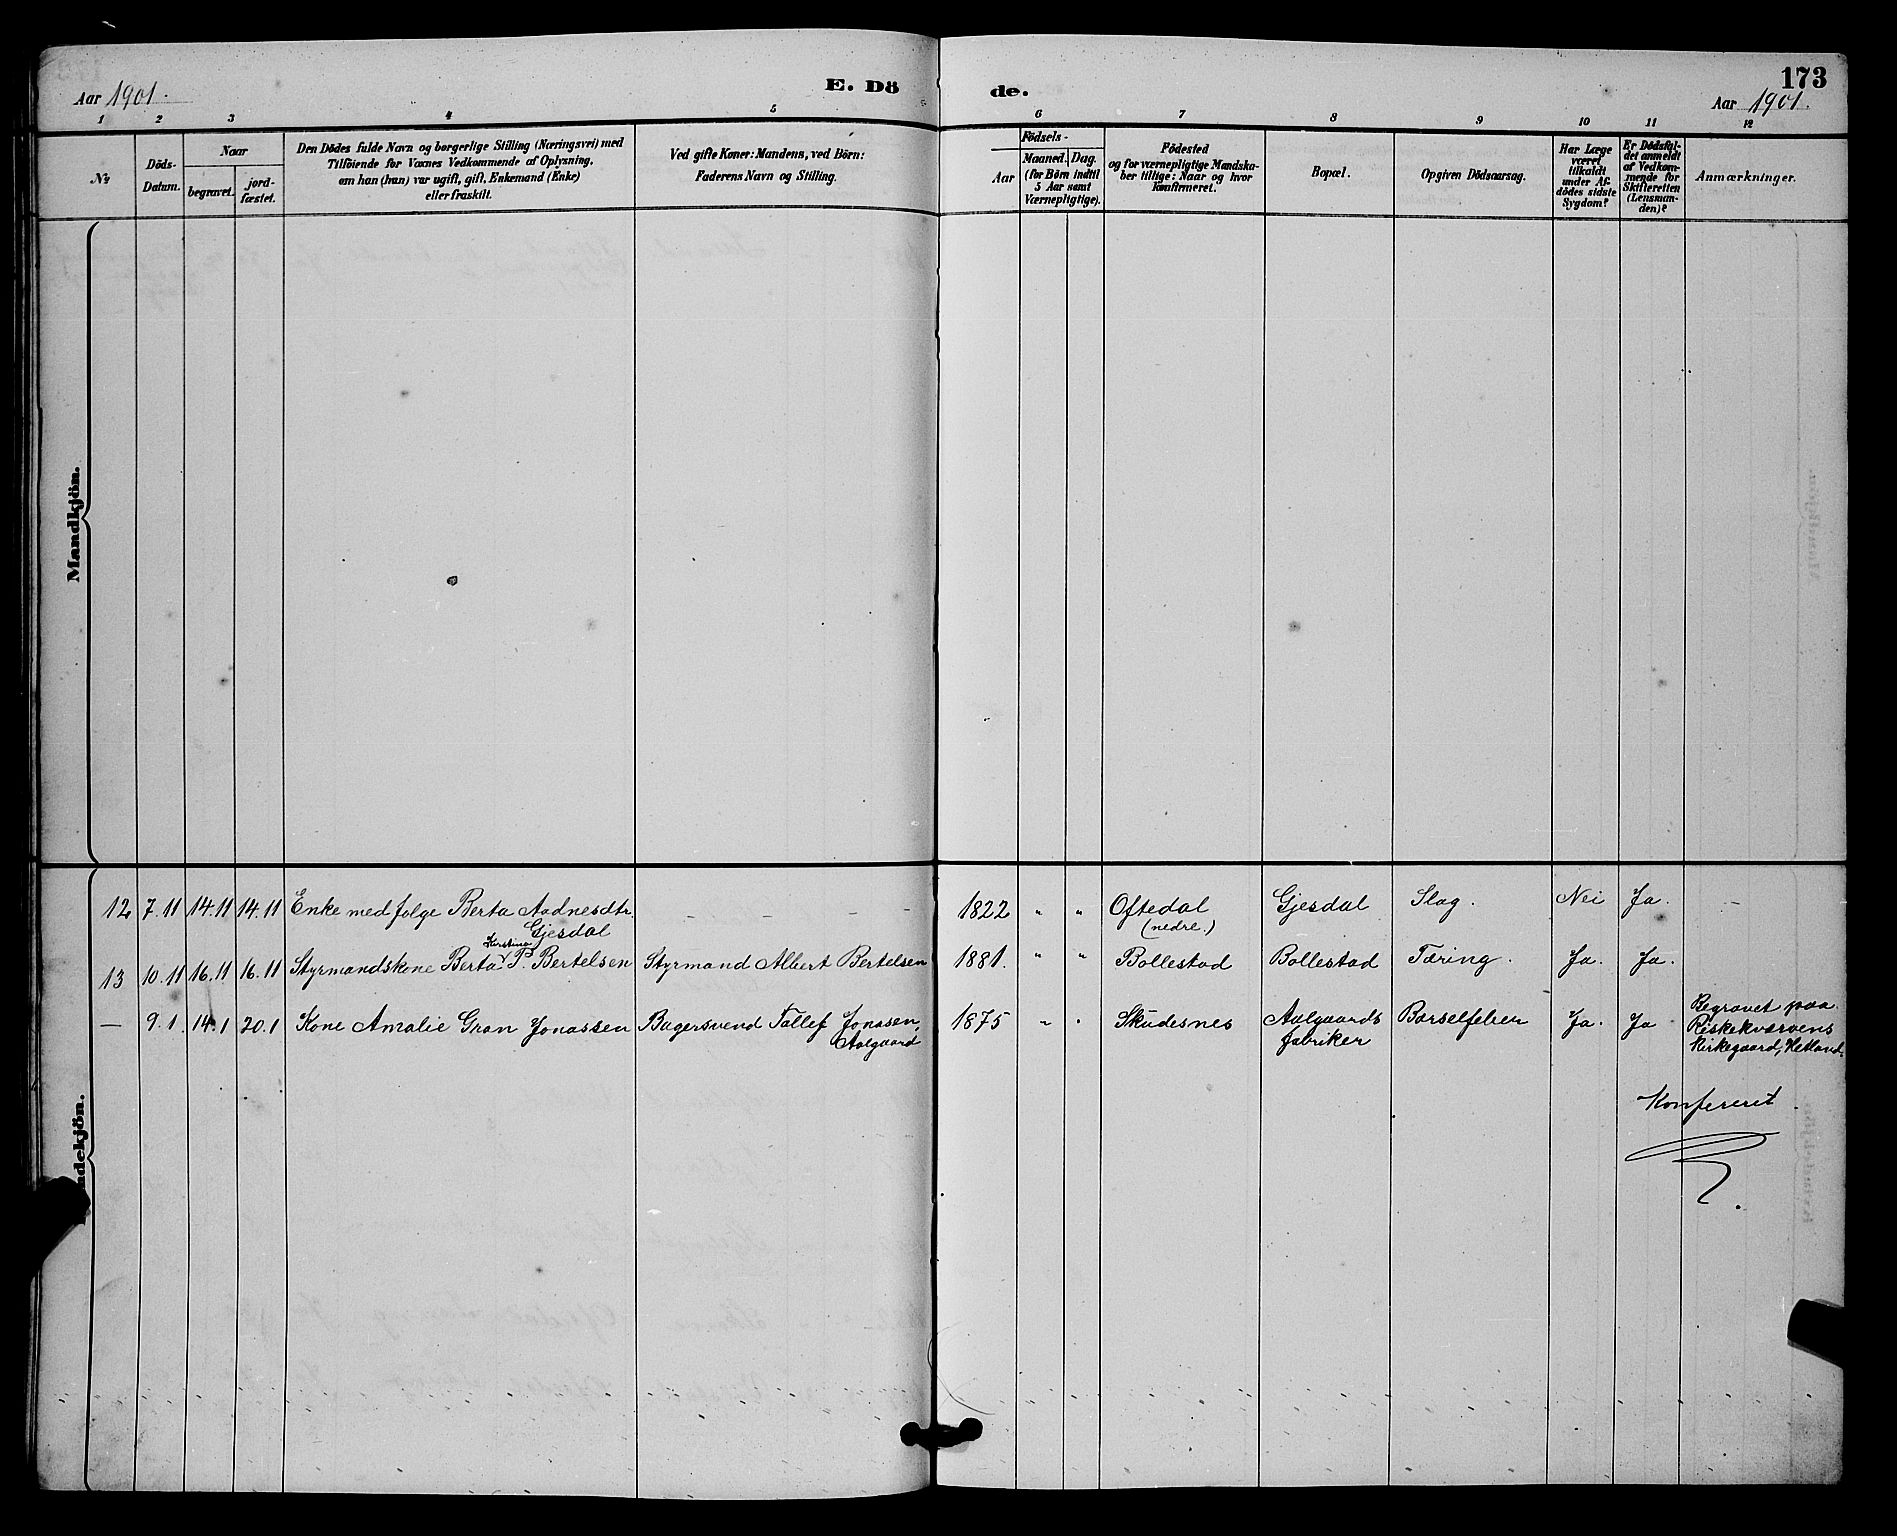 Aar 1901.
E. Dö
de.
173
Aar 1901.
1 2 3 4 5 6 7 8 9 10 11 12
No
Döds-
Datum.
Naar
begravet.
jord-
fæstet.
Den Dödes fulde Navn og borgerlige Stilling (Næringsvei) med
Tilföiende for Voxnes Vedkommende af Oplysning,
om han (hun) var ugift, gift, Enkemand (Enke)
eller fraskilt.
Ved gifte Koner: Mandens, ved Börn:
Faderens Navn og Stilling.
Födsels-
Aar
Maaned. Dag.
(for Börn indtil
5 Aar samt
Værnepligtige).
Födested
og for værnepligtige Mandska-
ber tillige: Naar og hvor
Konfirmeret.
Bopæl.
Opgiven Dödsaarsag.
Har Læge
været
tilkaldt
under Af-
dödes sidste
Sygdom?
Er Dödsfal-
det anmeldt
af Vedkom-
mende for
Skifteretten
(Lensman-
den)?
Anmærkninger.
Mandkjön.
ndekjön.
12 7.11 14.11 14.11 Enke med folge Berta Aadnesdtr. - - - - 1822 " " Oftedal Gjesdal Slag. Nei Ja. -
Gjesdal (nedre.)
Kirstine
13 10.11 16.11 16.11 Styrmandskone Berta P. Bertelsen Styrmand Albert Bertelsen 1881. " " Bollestad Bollestad Tæring. Ja. Ja.
— 9.1. 14.1 20.1 Kone Amalie Gran Jonassen Bagersvend Tallef Jonasen, 1875 " " Skudesnes Aalgaards Barselfeber Ja. Ja Begravet paa
Aalgaard fabriker Riskekværvens
Kirkegaard, Hetland.
Konfereret